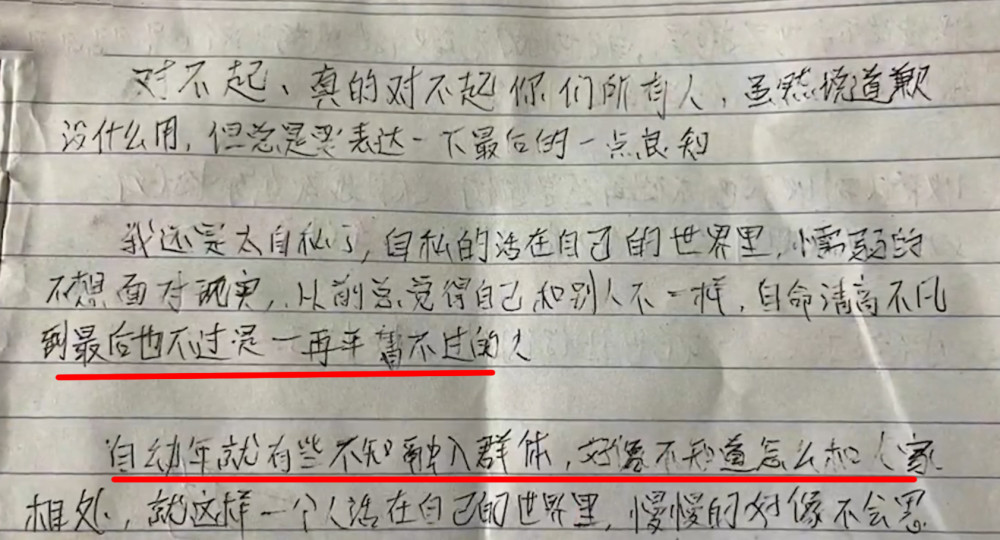 对不起、真的对不起你们所有人，虽然说道歉
没什么用，但总是要表达一下最后的一点良知
我还是太自私了，自私的活在自己的世界里，懦弱的
不想面对现实，从前总觉得自己和别人不一样，自命清高不凡
到最后也不过是一再平常不过的人
自幼年就有些不知融入群体，好像不知道怎么和人家
相处，就这样一个人活在自己的世界里，慢慢的好像不会思